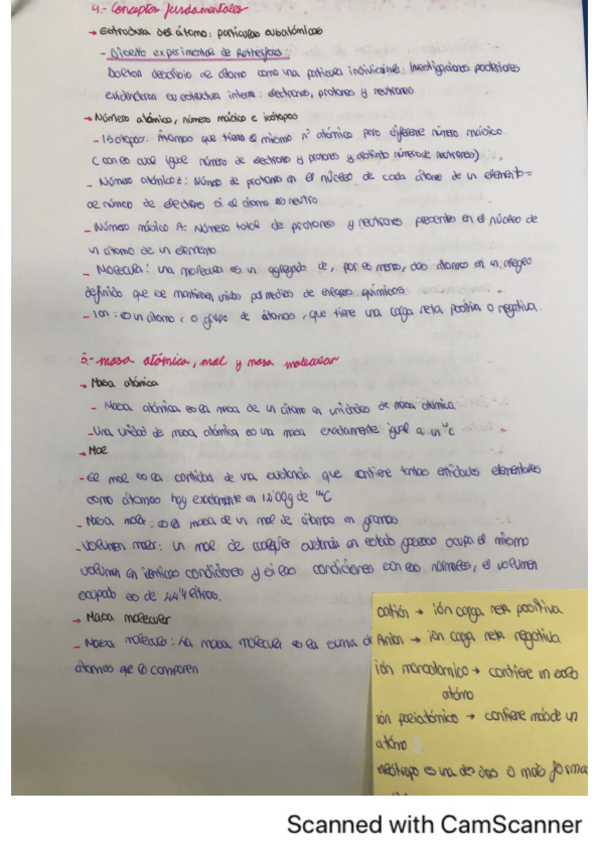 4.- Conceptos fundamentales
→ Estructura del átomo: partículas subatómicas
- Diseño experimental de Rutherford:
Dalton describió el átomo como una partícula indivisible. Investigaciones posteriores
evidenciaron su estructura interna: electrones, protones y neutrones.
→ Número atómico, número másico e isótopos
- Isótopos: Átomos que tienen el mismo nº atómico pero diferente número másico.
(con lo cual igual número de electrones y protones y distinto número de neutrones)
- Número atómico z: Número de protones en el núcleo de cada átomo de un elemento =
al número de electrones si el átomo es neutro
- Número másico A: Número total de protones y neutrones presentes en el núcleo de
un átomo de un elemento
- Molécula: una molécula es un agregado de, por lo menos, dos átomos en un arreglo
definido que se mantienen unidos por medios de enlaces químicos
- Ion: es un átomo, o grupo de átomos, que tiene una carga neta positiva o negativa.
5.- masa atómica, mol y masa molecular
→ Masa atómica
- Masa atómica es la masa de un átomo en unidades de masa atómica
- Una unidad de masa atómica es una masa exactamente igual a un C
→ Mol
- El mol es la cantidad de una sustancia que contiene tantas entidades elementales
como átomos hay exactamente en 12'00g de C
- Masa molar: es la masa de un mol de átomos en gramos
- Volumen molar: un mol de cualquier sustancia en estado gaseoso ocupa el mismo
volumen en idénticas condiciones y si las condiciones son las normales, el volumen
ocupado es de 22'4 litros.
→ Masa molecular
- Masa molecular: La masa molecular es la suma d
átomos que lo componen
catión → ión carga neta positiva
Anion → ión carga neta negativa
ión monoatomico → contiene un solo
atómo
ión poliatómico → contiene más de un
atómo
es una de dos o más forma
Scanned with CamScanner